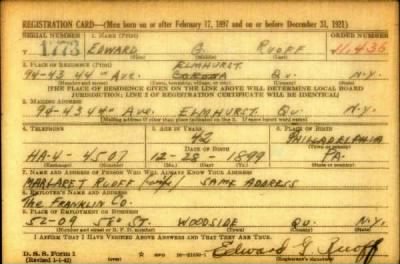 REGISTRATION CARD—(Men born on or after February 17, 1897 and on or before December 31, 1921)
SERIAL NUMBER 1. NAME (Print) ORDER NUMBER
T 1773 EDWARD G. RUOFF 11,436
2. PLACE OF RESIDENCE (Print) ELMHURST
94-43 44TH AVE. CORONA QU. N.Y.
[THE PLACE OF RESIDENCE GIVEN ON THE LINE ABOVE WILL DETERMINE LOCAL BOARD
JURISDICTION; LINE 2 OF REGISTRATION CERTIFICATE WILL BE IDENTICAL]
3. MAILING ADDRESS
94-43 44TH AVE. ELMHURST QU. N.Y.
[Mailing address if other than place indicated on line 2. If same insert word same]
4. TELEPHONE 5. AGE IN YEARS 6. PLACE OF BIRTH
42 PHILADELPHIA
DATE OF BIRTH
HA-4-4507 12-28-1899 PA.
7. NAME AND ADDRESS OF PERSON WHO WILL ALWAYS KNOW YOUR ADDRESS
MARGARET RUOFF SAME ADDRESS
8. EMPLOYER'S NAME AND ADDRESS
THE FRANKLIN CO.
9. PLACE OF EMPLOYMENT OR BUSINESS
52-09 ST. WOODSIDE QU. N.Y.
I AFFIRM THAT I HAVE VERIFIED ABOVE ANSWERS AND THAT THEY ARE TRUE.
D. S. S. Form 1 Edward G Ruoff
(Revised 1-1-42) (Registrant's signature)